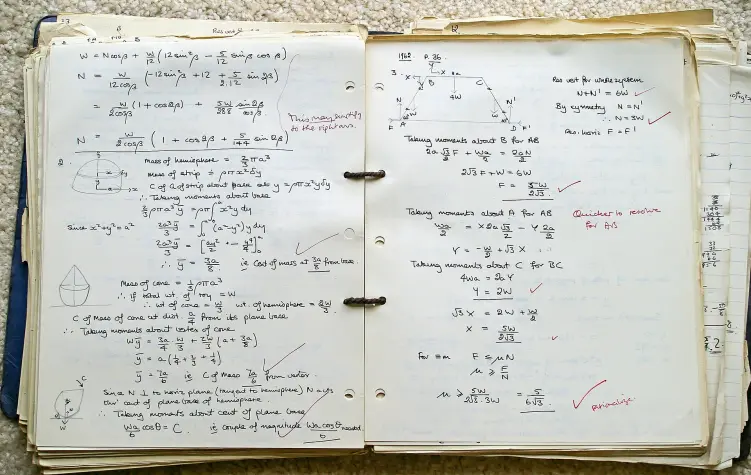 W = N cosβ + W/12 (12 sin²β − 5/12 sinβ cosβ)
N = W/12cosβ (−12 sin²β + 12 + 5/2.12 sin 2β)
= W/2cosβ (1 + cos 2β) + 5W/288 sin 2β/cosβ
This may simplify
to the right ans.
N = W/2cosβ (1 + cos 2β + 5/144 sin 2β)
2.
Mass of hemisphere = 2/3 πρa³
Mass of strip = ρπx²δy
C of G of strip about base at y = ρπx²yδy
∴ Taking moments about base
2/3 ρπa³ȳ = ρπ∫x²y dy
Since x²+y²=a²
2a³ȳ/3 = ∫(a²−y²)y dy
2a³ȳ/3 = [a²y²/2 − y⁴/4]
∴ ȳ = 3a/8 ie Cent of mass at 3a/8 from base.
Mass of cone = 1/3 ρπa³
∴ if total wt. of toy = W
∴ wt of cone = W/3 wt. of hemisphere = 2W/3.
C of Mass of cone at dist. a/4 from its plane base
∴ Taking moments about vertex of cone
Wȳ = 3a/4 . W/3 + 2W/3 (a + 3a/8)
ȳ = a(1/4 + 2/3 + 1/4)
ȳ = 7a/6 ie C of Mass 7a/6 from vertex.
Since N ⊥ to horiz plane (tangent to hemisphere) N acts
thr' cent of plane base of hemisphere.
∴ Taking moments about cent of plane base
Wa/6 cosθ = C . ie couple of magnitude Wa cosθ/6 needed.
1962 P. 86.
3.
X B C
4W
N N'
F A D F'
W
Res vert for whole system
N+N' = 6W
By symmetry N = N'
∴ N = 3W
Res. horiz F = F'
Taking moments about B for AB
2a√3/2 F + Wa/2 = 2aN/2
2√3 F + W = 6W
F = 5W/2√3
Taking moments about A for AB
Quicker to resolve
for AB
Wa/2 = X 2a√3/2 − Y 2a/2
Y = −W/2 + √3 X
Taking moments about C for BC
4Wa = 2aY
Y = 2W
√3 X = 2W + W/2
X = 5W/2√3
For eqm F ≤ μN
μ ≥ F/N
μ ≥ 5W/2√3.3W = 5/6√3.
rationalize